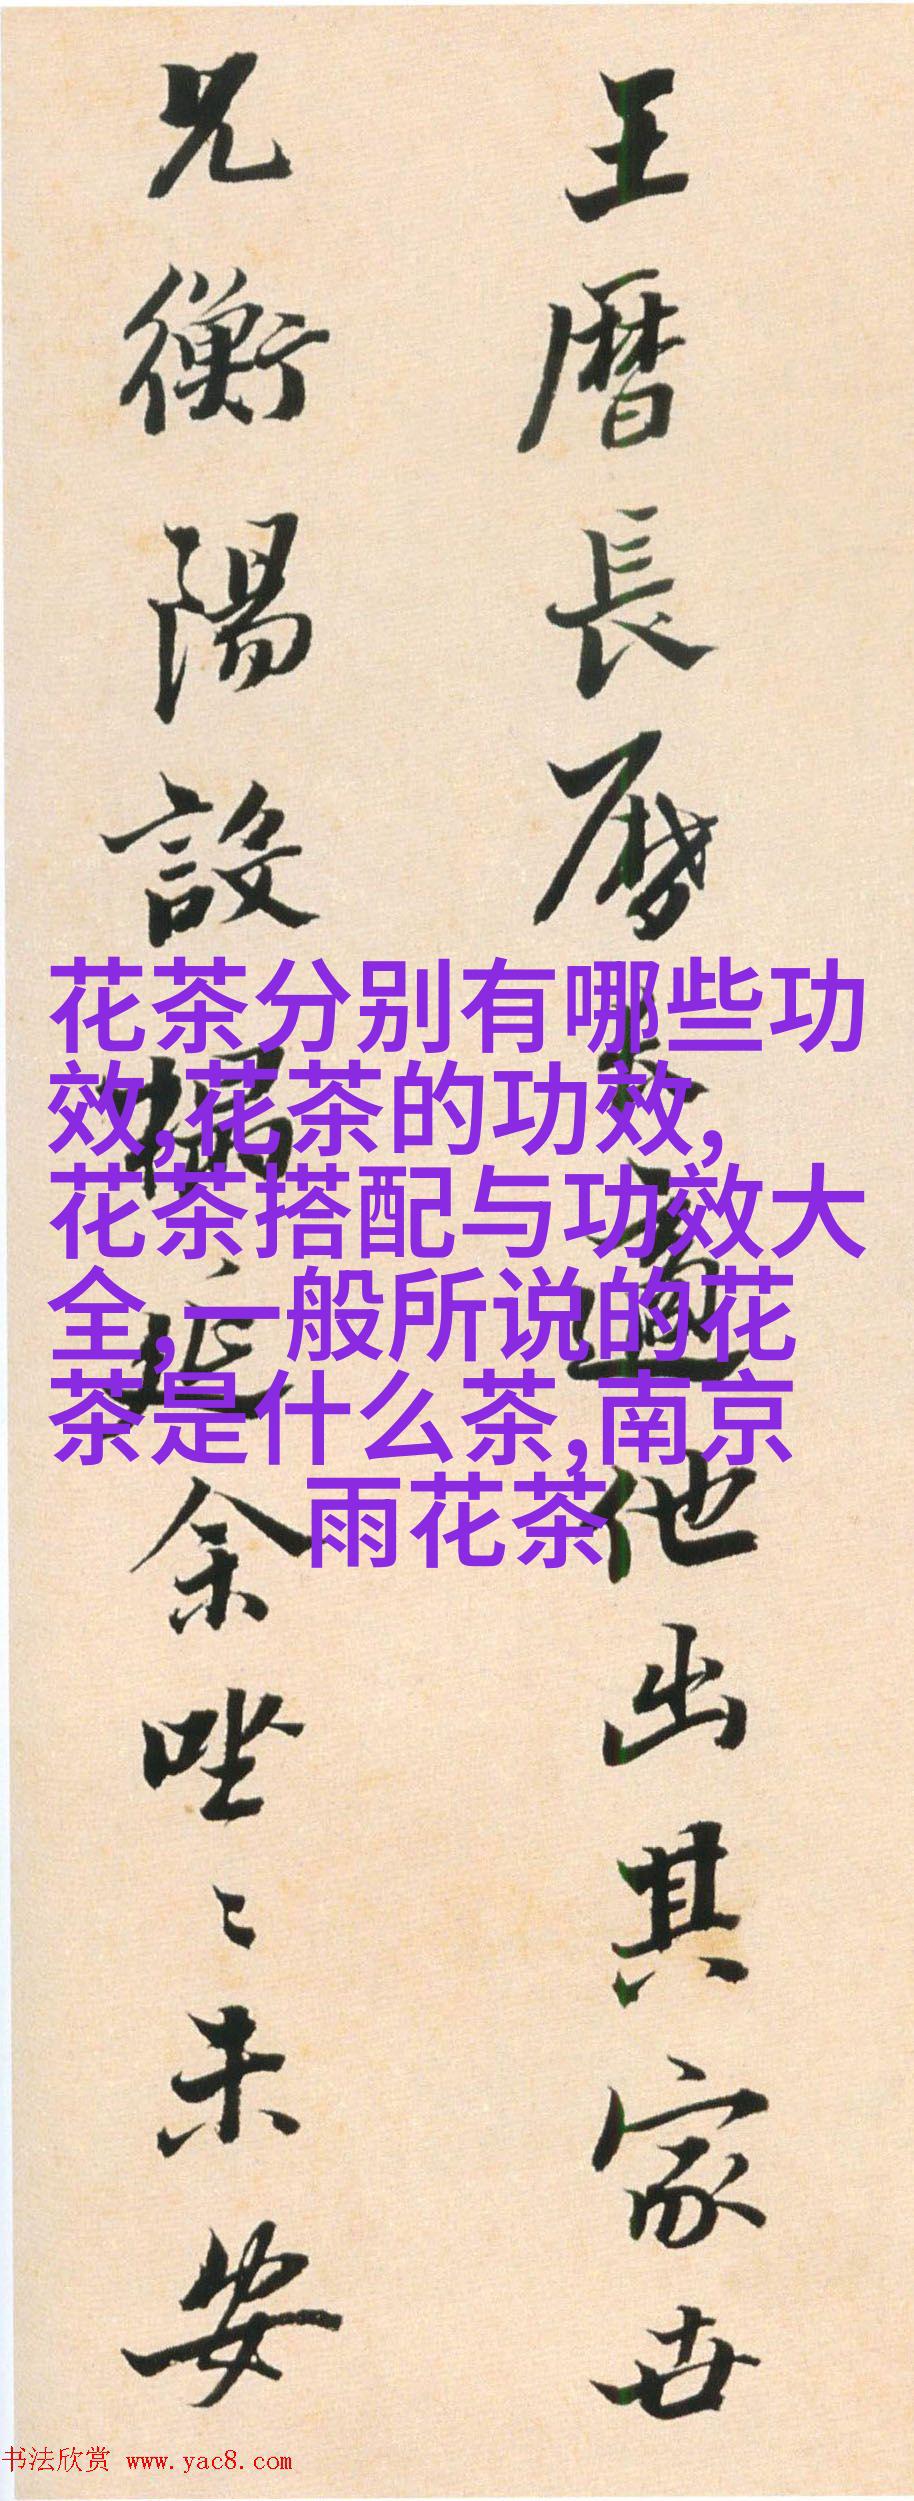 王曆長
他出其家世
兄衡陽設榻延余唑〻未安
花茶分别有哪些功
效,花茶的功效,
花茶搭配与功效大
全,一般所说的花
茶是什么茶,南京
雨花茶
书法欣赏 www.yac8.com